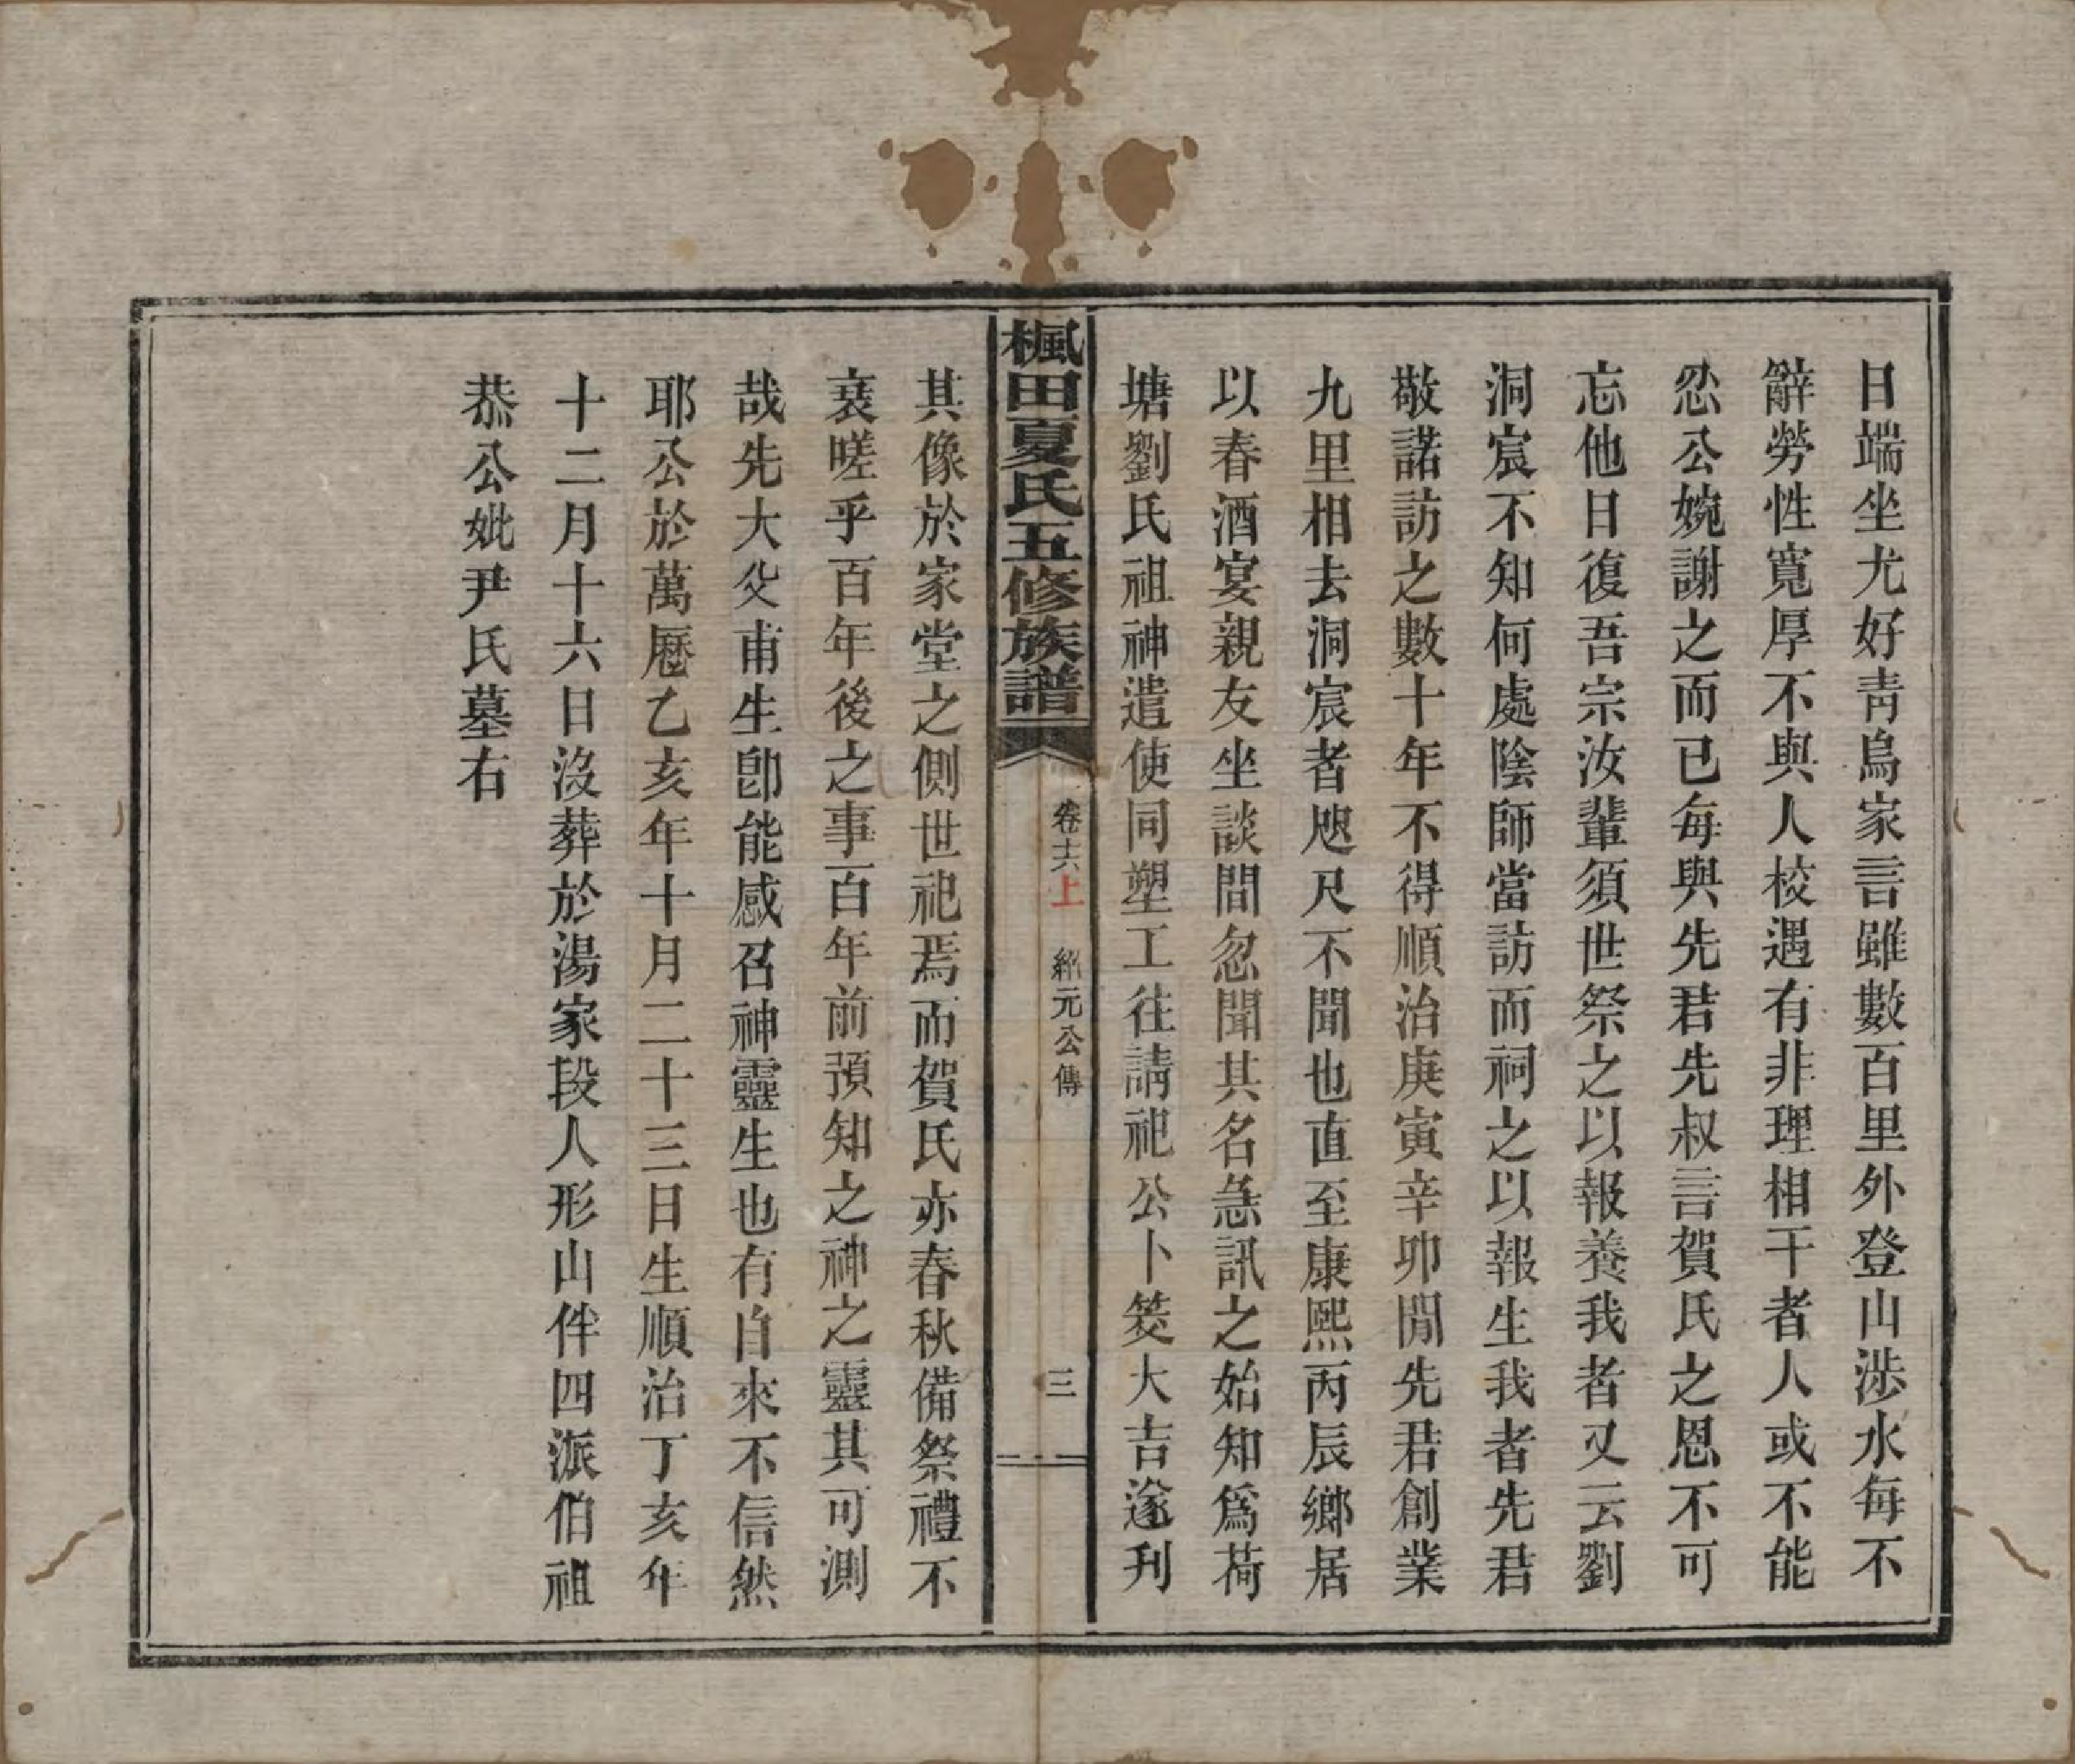 日端坐尤好靑烏家言雖數百里外登山渉水每不
辭勞性寬厚不與人校遇有非理相干者人或不能
忍公婉謝之而已每與先君先叔言賀氏之恩不可
忘他日復吾宗汝輩須世祭之以報養我者又云劉
洞宸不知何處陰師當訪而祠之以報生我者先君
敬諾訪之數十年不得順治庚寅辛卯閒先君創業
九里相去洞宸者咫尺不聞也直至康熙丙辰鄉居
以春酒宴親友坐談間忽聞其名急訊之始知爲荷
塘劉氏祖神遣使同塑工往請祀公卜筊大吉遂刋
楓田夏氏五修族譜
卷十六上 紹元公傳
三
其像於家堂之側世祀焉而賀氏亦春秋備祭禮不
衰嗟乎百年後之事百年前預知之神之靈其可測
哉先大父甫生卽能感召神靈生也有自來不信然
耶公於萬曆乙亥年十月二十三日生順治丁亥年
十二月十六日沒葬於湯家段人形山伴四派伯祖
恭公妣尹氏墓右